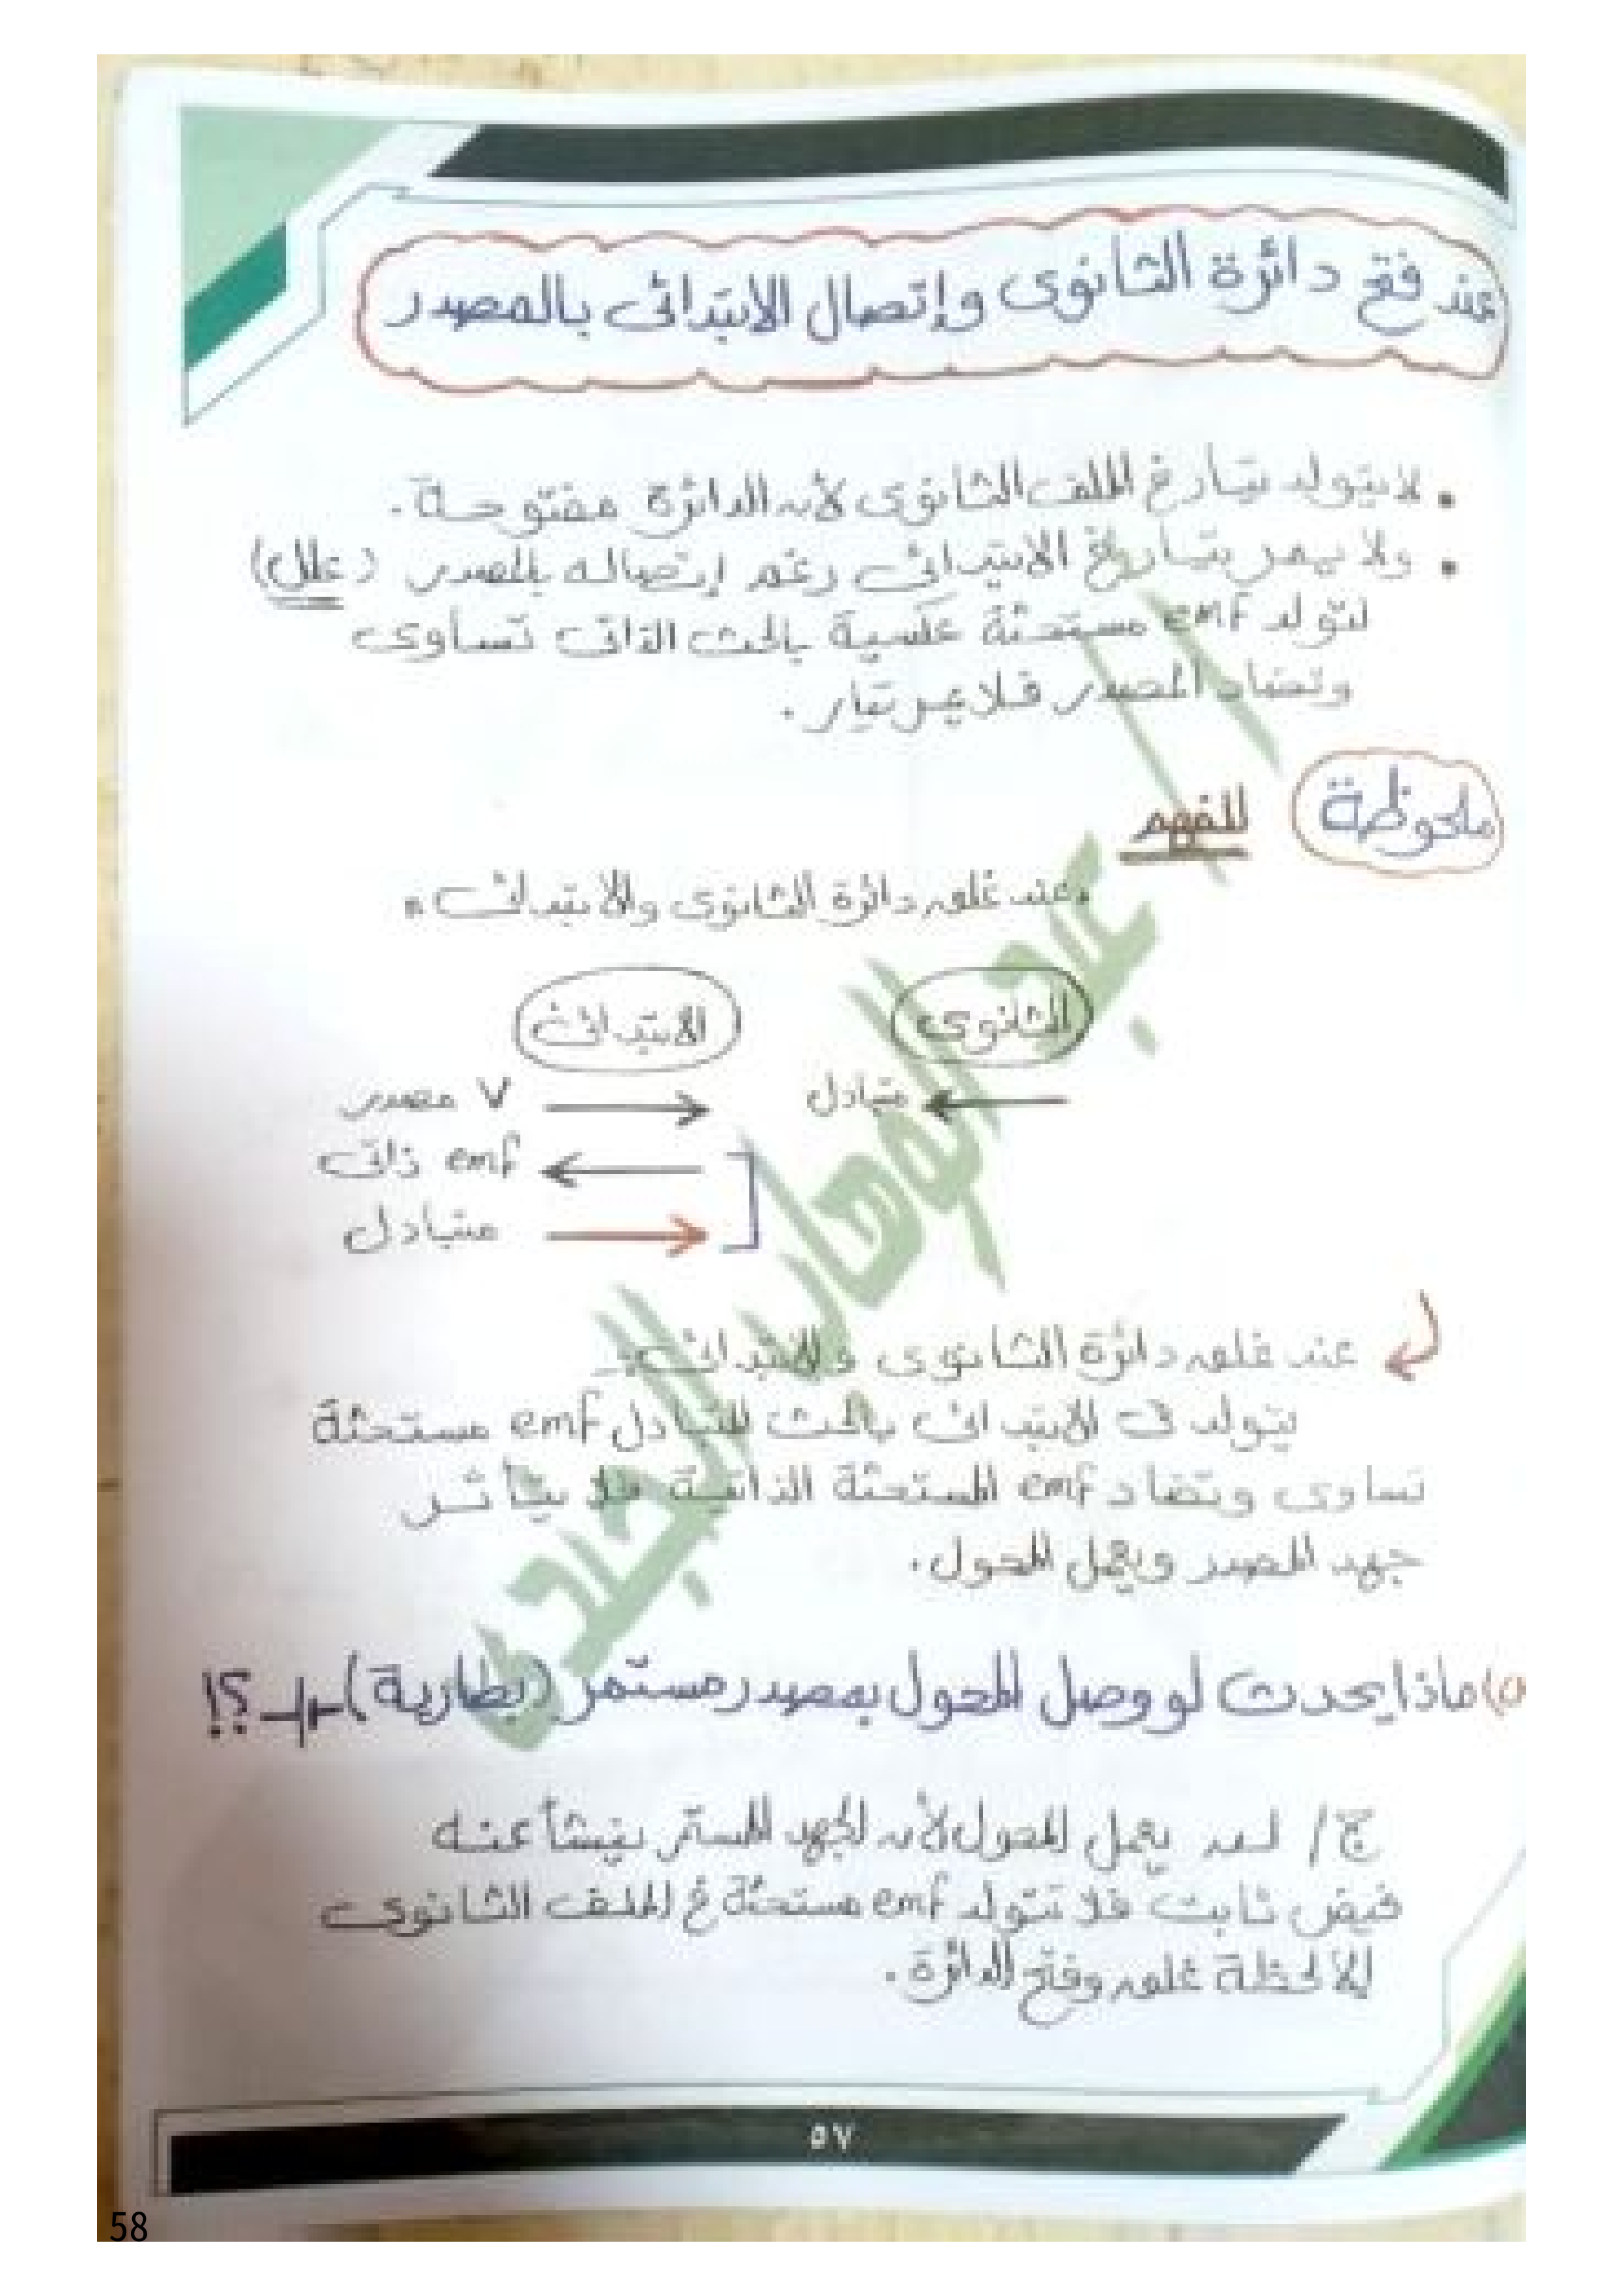 عند فتح دائرة الثانوى وإتصال الابتدائى بالمصدر
• لا يتولد تيار في الملف الثانوى لأن الدائرة مفتوحة.
• ولا يمر تيار في الابتدائى رغم إتصاله بالمصدر (علل)
لتولد emf مستحثة عكسية بالحث الذاتى تساوى
وتضاد المصدر فلا يمر تيار.
ملحوظة للفهم
"عند غلق دائرة الثانوى والابتدائى"
الثانوى الابتدائى
متبادل ← → V مصدر
← emf ذاتى
→ متبادل
عند غلق دائرة الثانوى والابتدائى:-
يتولد فى الابتدائى بالحث المتبادل emf مستحثة
تساوى وتضاد emf المستحثة الذاتية فلا يتأثر
جهد المصدر ويعمل المحول.
ماذا يحدث لو وصل المحول بمصدر مستمر (بطارية) ؟!
ج/ لن يعمل المحول لأن الجهد المستمر ينشأ عنه
فيض ثابت فلا تتولد emf مستحثة في الملف الثانوى
إلا لحظة غلق وفتح الدائرة.
عبد الوهاب الجندى
٥٧
58